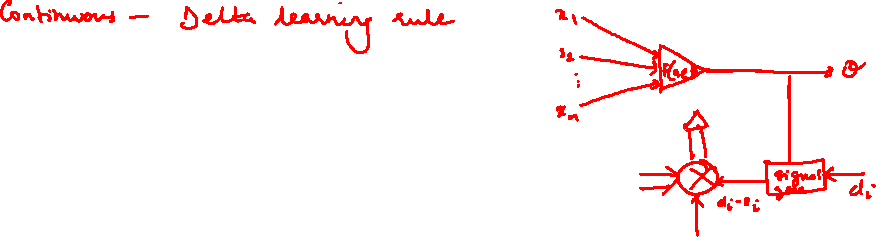 Continuous — Delta learning rule
x1
x2
xn
f(net)
O
signal
di - oi
di